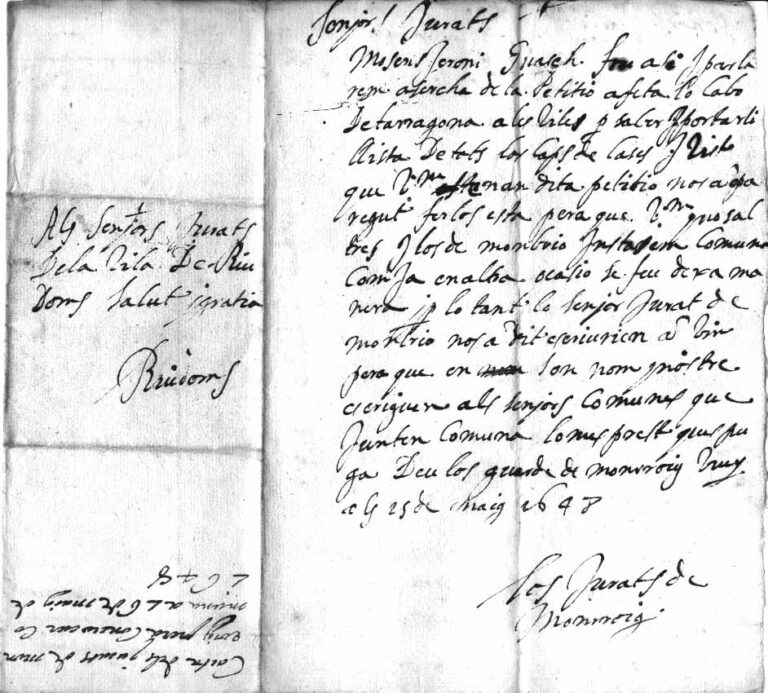 Senjors Jurats
Mosens Jeroni Guasch fou asi y parla
rem asercha de la Petitio a feta lo Cabo
De tarragona a les viles p saber y portarli
llista De tots los caps de cases y vist
que nan dita petitio nos a pa
regut ferlos esta pera que vosal
tres y los de monbrio Instasem Comuna
Com Ja en altra ocasio se feu de ra ma
nera y p lo tant lo senjor Jurat de
monbrio nos a dit escriurien a
pera que en son nom y nostre
escriguen als senjors Comunes que
Junten Comuna lo mes prest ques pu
ga Deu los guarde de monroig vuy
als 25 de Maig 1648
Los Jurats de
Monroig
Als Senjors Jurats
De la Vila De Riu
Doms Salut y gratia
Riudoms
Carta dels jurats de mon
roig pera convocar Co
muna a 26 de maig de
1648